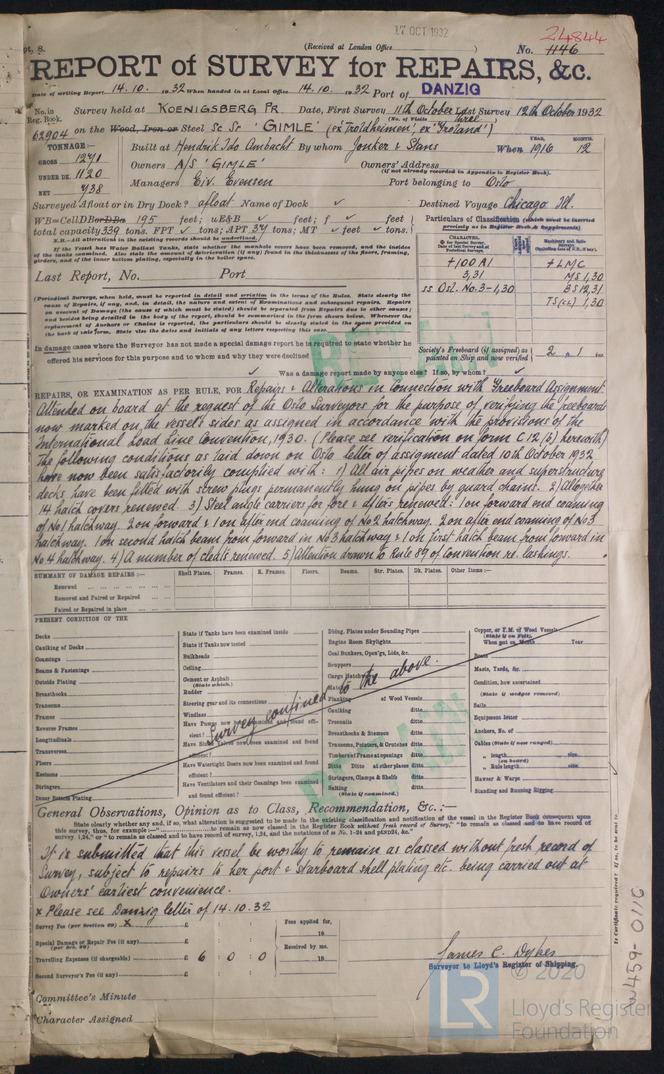 17 OCT 1932
pt, 8.
(Received at London Office )
No. 24844
4146
REPORT of SURVEY for REPAIRS, &c.
Date of writing Report 14.10. 1932 When handed in at Local Office 14.10. 1932 Port of DANZIG
No. in Reg. Book. Survey held at KOENIGSBERG PR Date, First Survey 11th October Last Survey 12th October 1932
(No. of Visits three)
62904 on the Wood, Iron or Steel Sc Sr 'GIMLE' (ex 'Troldheimen', ex
TONNAGE:—
GROSS 1271
UNDER DK. 1120
NET 738
Built at Hendrik Ido Ambacht By whom Jonker & Stans When 1916 12
YEAR. MONTH.
Owners A/S 'GIMLE' Owners' Address
(if not already recorded in Appendix to Register Book).
Managers Eiv. Evensen Port belonging to Oslo
Surveyed Afloat or in Dry Dock? afloat Name of Dock ✓ Destined Voyage Chicago Ill.
WB=CellDBorDBa 195 feet; uE&B ✓ feet; f ✓ feet
total capacity 339 tons. FPT ✓ tons; APT 34 tons; MT ✓ feet ✓ tons.
N.B.—All alterations in the existing records should be underlined.
If the Vessel has Water Ballast Tanks, state whether the manhole covers have been removed, and the insides of the tanks examined. Also state the amount of deterioration (if any) found in the thicknesses of the floors, framing, girders, and of the inner bottom plating, especially in the boiler space.
Particulars of Classification (which must be inserted precisely as in Register Book & Supplements)
+100A1
3,31
SS Osl. No.3-1,30
+LMC
MS 1,30
BS 12,31
TS(CL) 1,30
Last Report, No. Port
(Periodical Surveys, when held, must be reported in detail and seriatim in the terms of the Rules. State clearly the cause of Repairs, if any, and, in detail, the nature and extent of Examinations and subsequent repairs. Repairs on account of Damage (the cause of which must be stated) should be separated from Repairs due to other causes; and besides being detailed in the body of the report, should be summarised in the form shewn below. Whenever the replacement of Anchors or Chains is reported, the particulars should be clearly stated in the space provided on the back of this form. State also the dates and initials of any letters respecting this case.
In damage cases where the Surveyor has not made a special damage report he is required to state whether he offered his services for this purpose and to whom and why they were declined
Society's Freeboard (if assigned) as painted on Ship and now verified 2 . 1
✓ Was a damage report made by anyone else? If so, by whom? ✓
REPAIRS, OR EXAMINATION AS PER RULE, FOR Repairs & Alterations in Connection with Freeboard Assignment
Attended on board at the request of the Oslo Surveyors for the purpose of verifying the freeboards
now marked on the vessel's sides as assigned in accordance with the provisions of the
International Load Line Convention, 1930. (Please see verification on form C.12(6) herewith)
The following conditions as laid down on Oslo letter of assigment dated 10th October 1932
have now been satisfactorily complied with: 1) All air pipes on weather and superstructure
decks have been fitted with screw plugs permanently hung on pipes by guard chains. 2) Altogether
14 hatch covers renewed. 3) Steel angle carriers for fore & afters renewed: 1 on forward end coaming
of No1 hatchway. 2 on forward & 1 on after end coaming of No2 hatchway. 2 on after end coaming of No3
hatchway. 1 on second hatch beam from forward in No3 hatchway & 1 on first hatch beam from forward in
No 4 hatchway. 4) A number of cleats renewed. 5) Attention drawn to Rule 89 of Convention re. lashings.
SUMMARY OF DAMAGE REPAIRS:— Shell Plates. Frames. R. Frames. Floors. Beams. Str. Plates. Dk. Plates. Other Items:—
Renewed
Removed and Faired or Repaired
Faired or Repaired in place
PRESENT CONDITION OF THE
Decks
Caulking of Decks
Coamings
Beams & Fastenings
Outside Plating
Breasthooks
Transoms
Frames
Reverse Frames
Longitudinals
Transverses
Floors
Keelsons
Stringers
Inner Bottom Plating
State if Tanks have been examined inside
State if Tanks now tested
Bulkheads
Ceiling
Cement or Asphalt
(State which.)
Rudder
Steering gear and its connections
Windlass
Have Pumps now been examined and found efficient?
Have Sluice Valves now been examined and found efficient?
Have Watertight Doors now been examined and found efficient?
Have Ventilators and their Coamings been examined and found efficient?
Dblng. Plates under Sounding Pipes
Engine Room Skylights
Coal Bunkers, Open'gs, Lids, &c.
Scuppers
Cargo Hatchways
Planking of Wood Vessels
Caulking ditto
Treenails ditto
Breasthooks & Stemson ditto
Transoms, Pointers, & Crutches ditto
Timbers of Frame at openings ditto
Ditto Ditto at other places ditto
Stringers, Clamps & Shelfs ditto
Salting ditto
(State if examined.)
Copper, or Y.M. of Wood Vessels
(State if on Felt).
When put on, Month Year
Boats
Masts, Yards, &c.
Condition, how ascertained
(State if wedges removed)
Sails
Equipment letter
Anchors, No. of
Cables (State if now ranged)
" length size
(on board)
" Rule length size
Hawser & Warps
Standing and Running Rigging
Survey confined to the above.
RETAIN
RETAIN
General Observations, Opinion as to Class, Recommendation, &c.:—
State clearly whether any and, if so, what alteration is suggested to be made in the existing classification and notification of the vessel in the Register Book consequent upon this survey, thus, for example:—" to remain as now classed in Register Book without fresh record of Survey," "to remain as classed and to have record of survey, 1,24," or " to remain as classed and to have record of survey, 1,24, and the notations of ss. No. 1-24 and ptND24, &c."
It is submitted that this vessel be worthy to remain as classed without fresh record of
Survey, subject to repairs to her port & starboard shell plating etc. being carried out at
Owners' earliest convenience.
x Please see Danzig letter of 14.10.32
Survey Fee (per Section 29) X £ : : Fees applied for, 19
Special Damage or Repair Fee (if any) £ : :
(per Sec. 29)
Travelling Expenses (if chargeable) £ 6 : 0 : 0 Received by me, 19
Second Surveyor's Fee (if any) £
James C. Dykes
Surveyor to Lloyd's Register of Shipping.
Committee's Minute
Character Assigned
Is Certificate required? If so, to be sent to
W459-0116
© 2020
LR
Lloyd's Register
Foundation